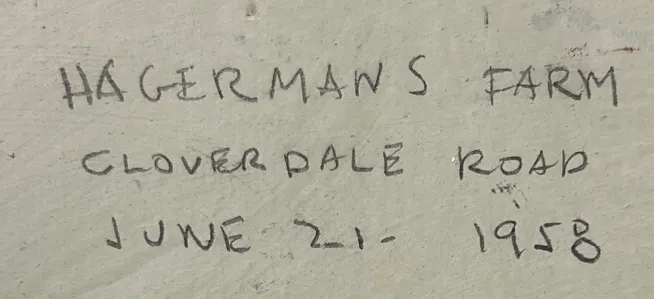 HAGERMANS FARM
CLOVERDALE ROAD
JUNE 21- 1958